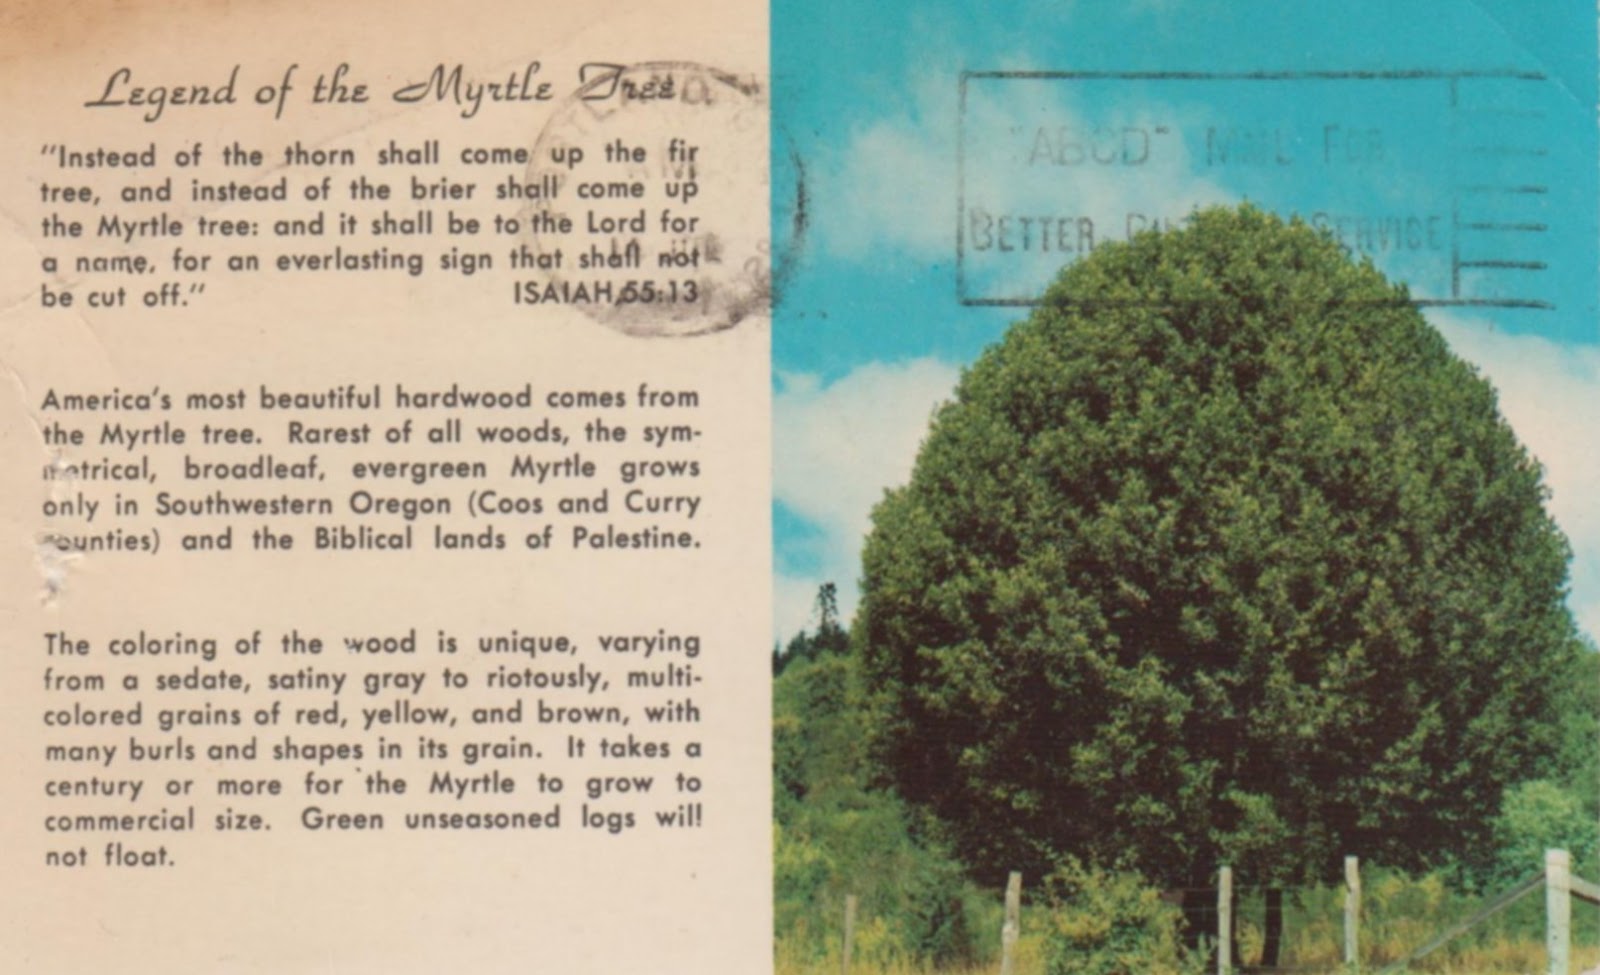 Legend of the Myrtle Tree
"Instead of the thorn shall come up the fir
tree, and instead of the brier shall come up
the Myrtle tree: and it shall be to the Lord for
a name, for an everlasting sign that shall not
be cut off." ISAIAH, 55:13
America's most beautiful hardwood comes from
the Myrtle tree. Rarest of all woods, the sym-
metrical, broadleaf, evergreen Myrtle grows
only in Southwestern Oregon (Coos and Curry
counties) and the Biblical lands of Palestine.
The coloring of the wood is unique, varying
from a sedate, satiny gray to riotously, multi-
colored grains of red, yellow, and brown, with
many burls and shapes in its grain. It takes a
century or more for the Myrtle to grow to
commercial size. Green unseasoned logs will
not float.
"ABCD" MAIL FOR
BETTER SERVICE